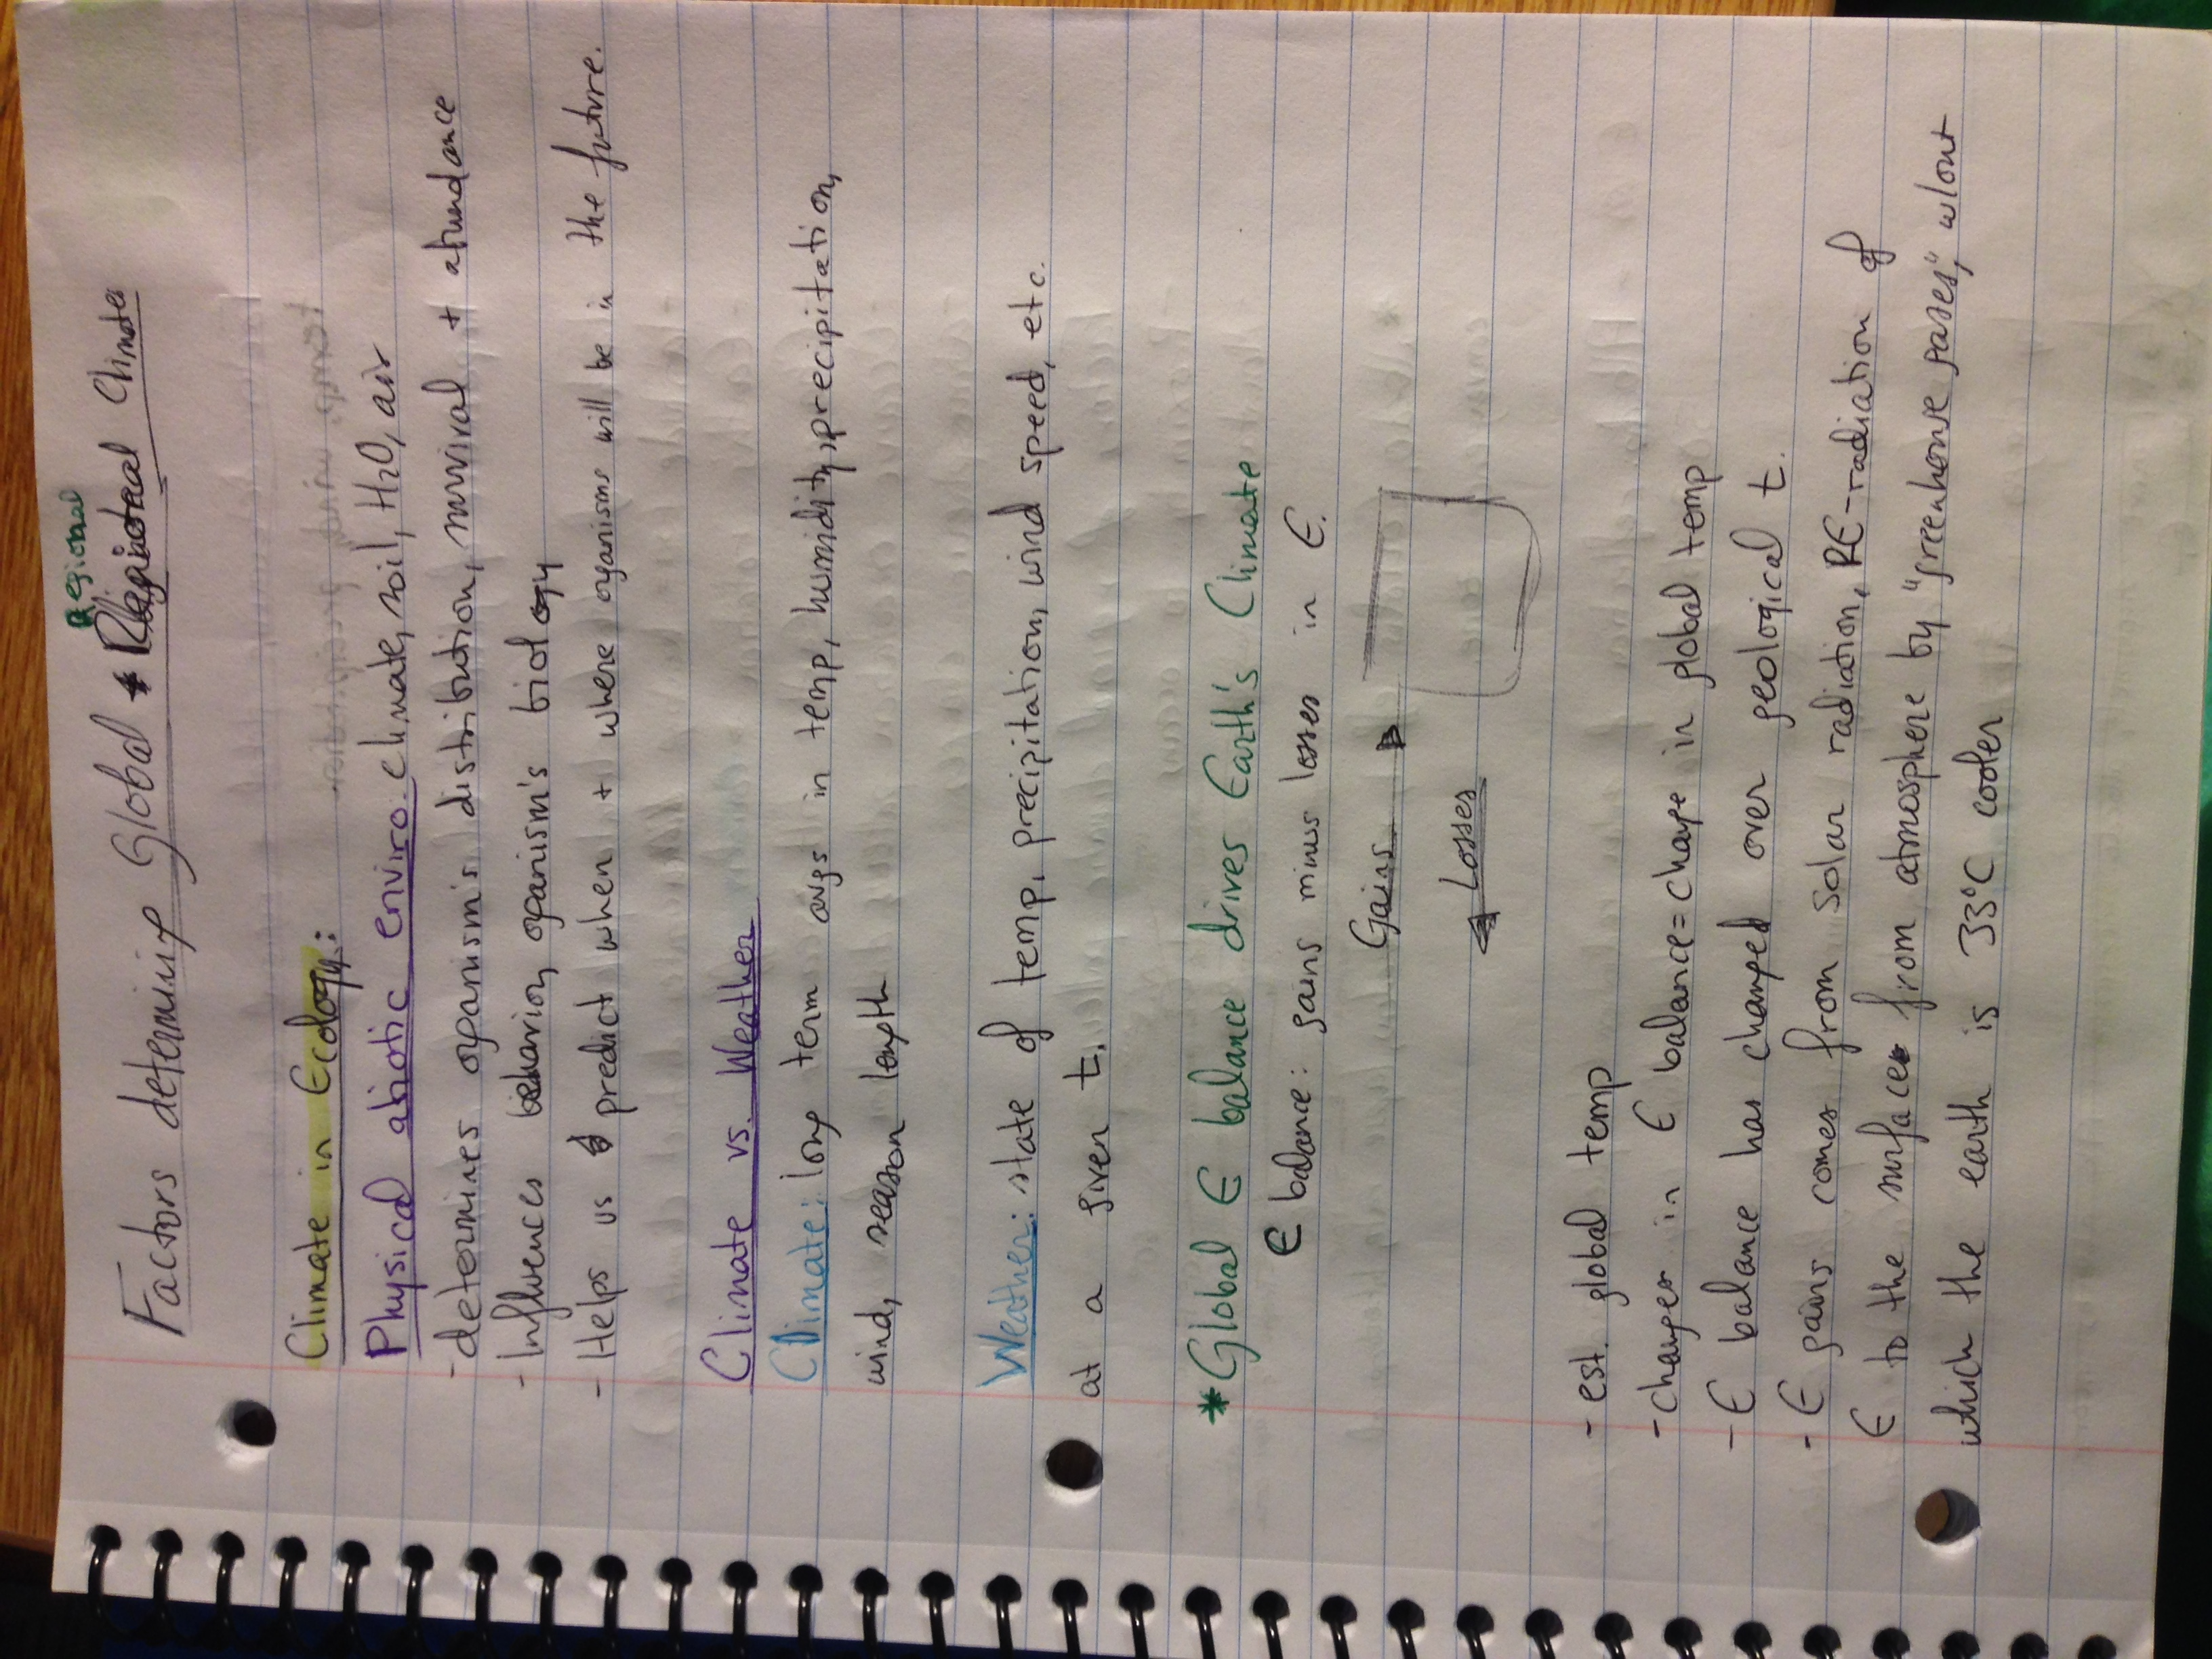 Regional
Factors determing Global + Regional Climates
Climate in Ecology:
Physical abiotic enviro: climate, soil, H2O, air
- determines organism's distribution, survival + abundance
- Influences behavior, organism's biology
- Helps us predict when + where organisms will be in the future.
Climate vs. Weather
Climate: long term avgs in temp, humidity, precipitation,
wind, season length
Weather: state of temp, precipitation, wind speed, etc.
at a given t.
* Global E balance drives Earth's Climate
E balance: gains minus losses in E.
Gains
Losses
- est. global temp
- changes in E balance = change in global temp
- E balance has changed over geological t.
- E gains comes from solar radiation, RE-radiation of
E to the surface from atmosphere by "greenhouse gases," w/out
which the earth is 33°C cooler